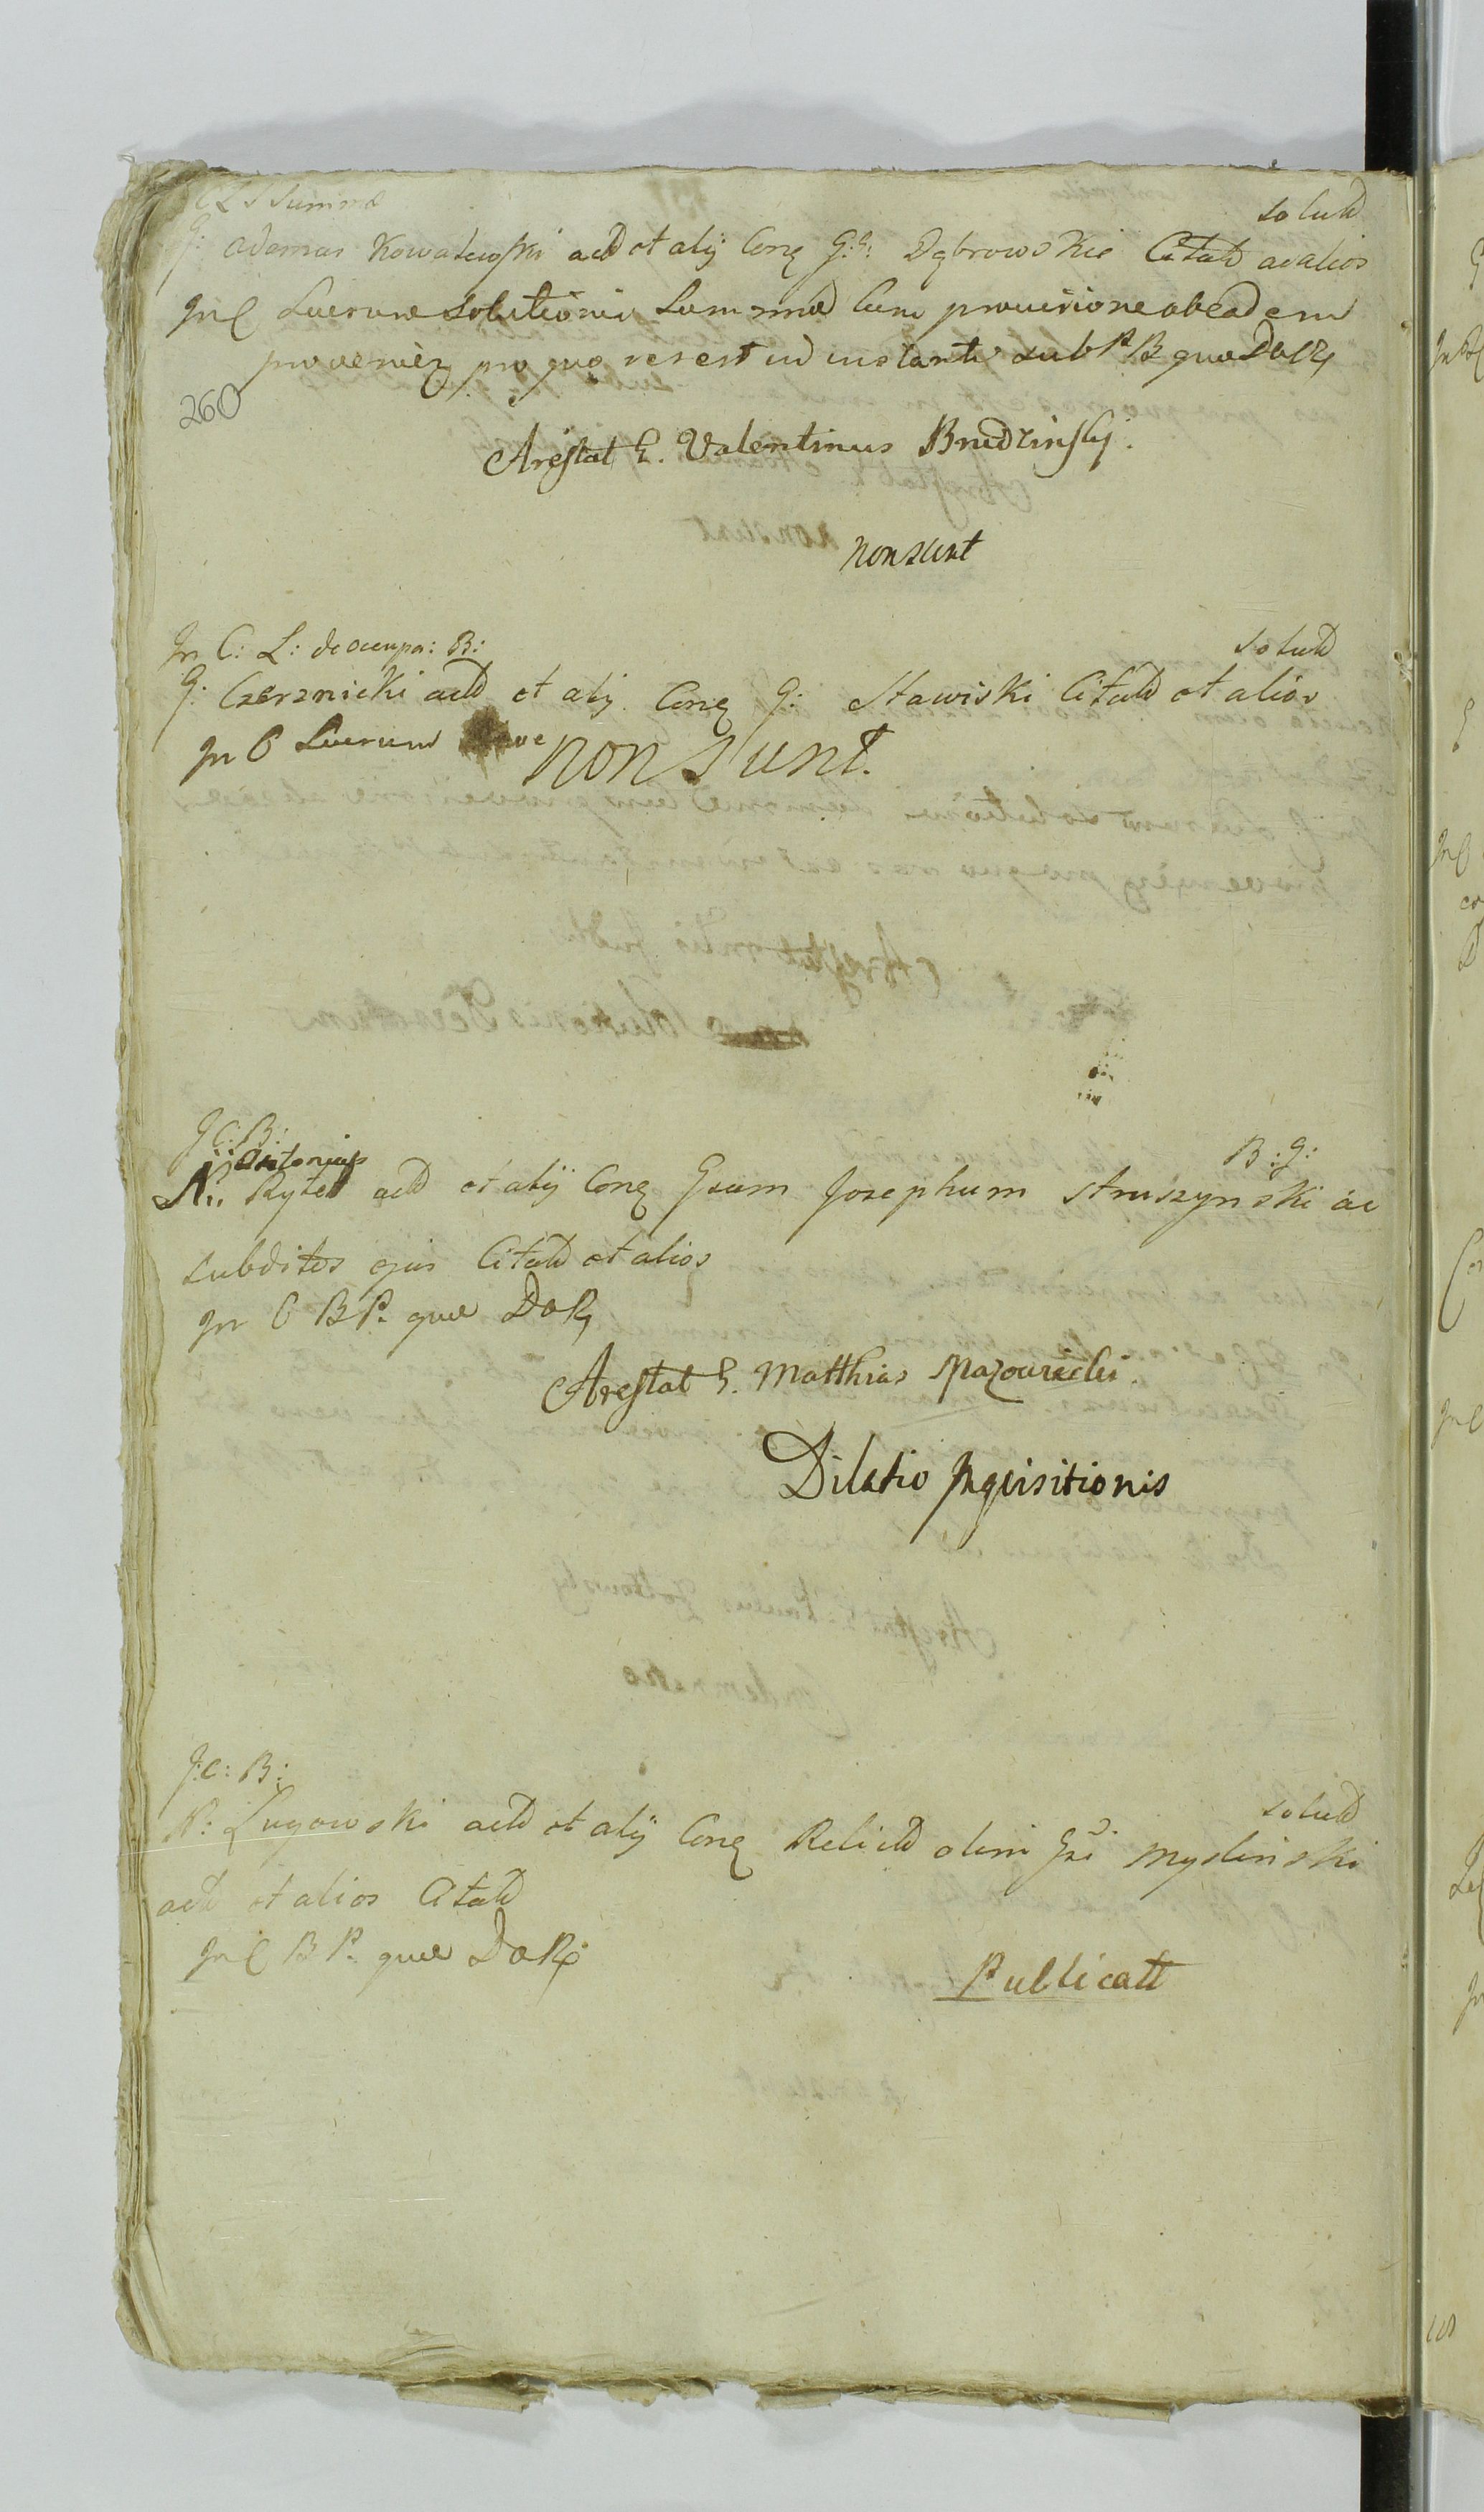 C L S Summæ
solutt
G: Adamus Kowalewski actt et alij Conq G:G: Dąbrowskie Citatt ac alios
In C Lucrum solutionis Summæ cum provisione ab eadem
provenieñ pro quo res est ut instant sub P B quæ D
260
Arestat G. Valentinus Brudzinsky.
non sunt
In C: L: de occupa: B:
solutt
G: Czerznicki actt et alij Conq G: Stawiski Citatt et alios
In C Lucrum sive
non sunt.
J C: B:
B: G:
Antonius
N:. Rytel actt et alij Conq Gsum Josephum Struszynski ac
subditos ejus Citatt et alios
In C B P. quæ DoR
Arestat G. Matthias Mazowiecki.
Dilatio Inquisitionis
J: C: B:
solutt
N: Lugowski actt et alij Conq Relictt olim Gsi Myslinski
actt et alios Citatt
In C B P. quæ DoR
Publicatt